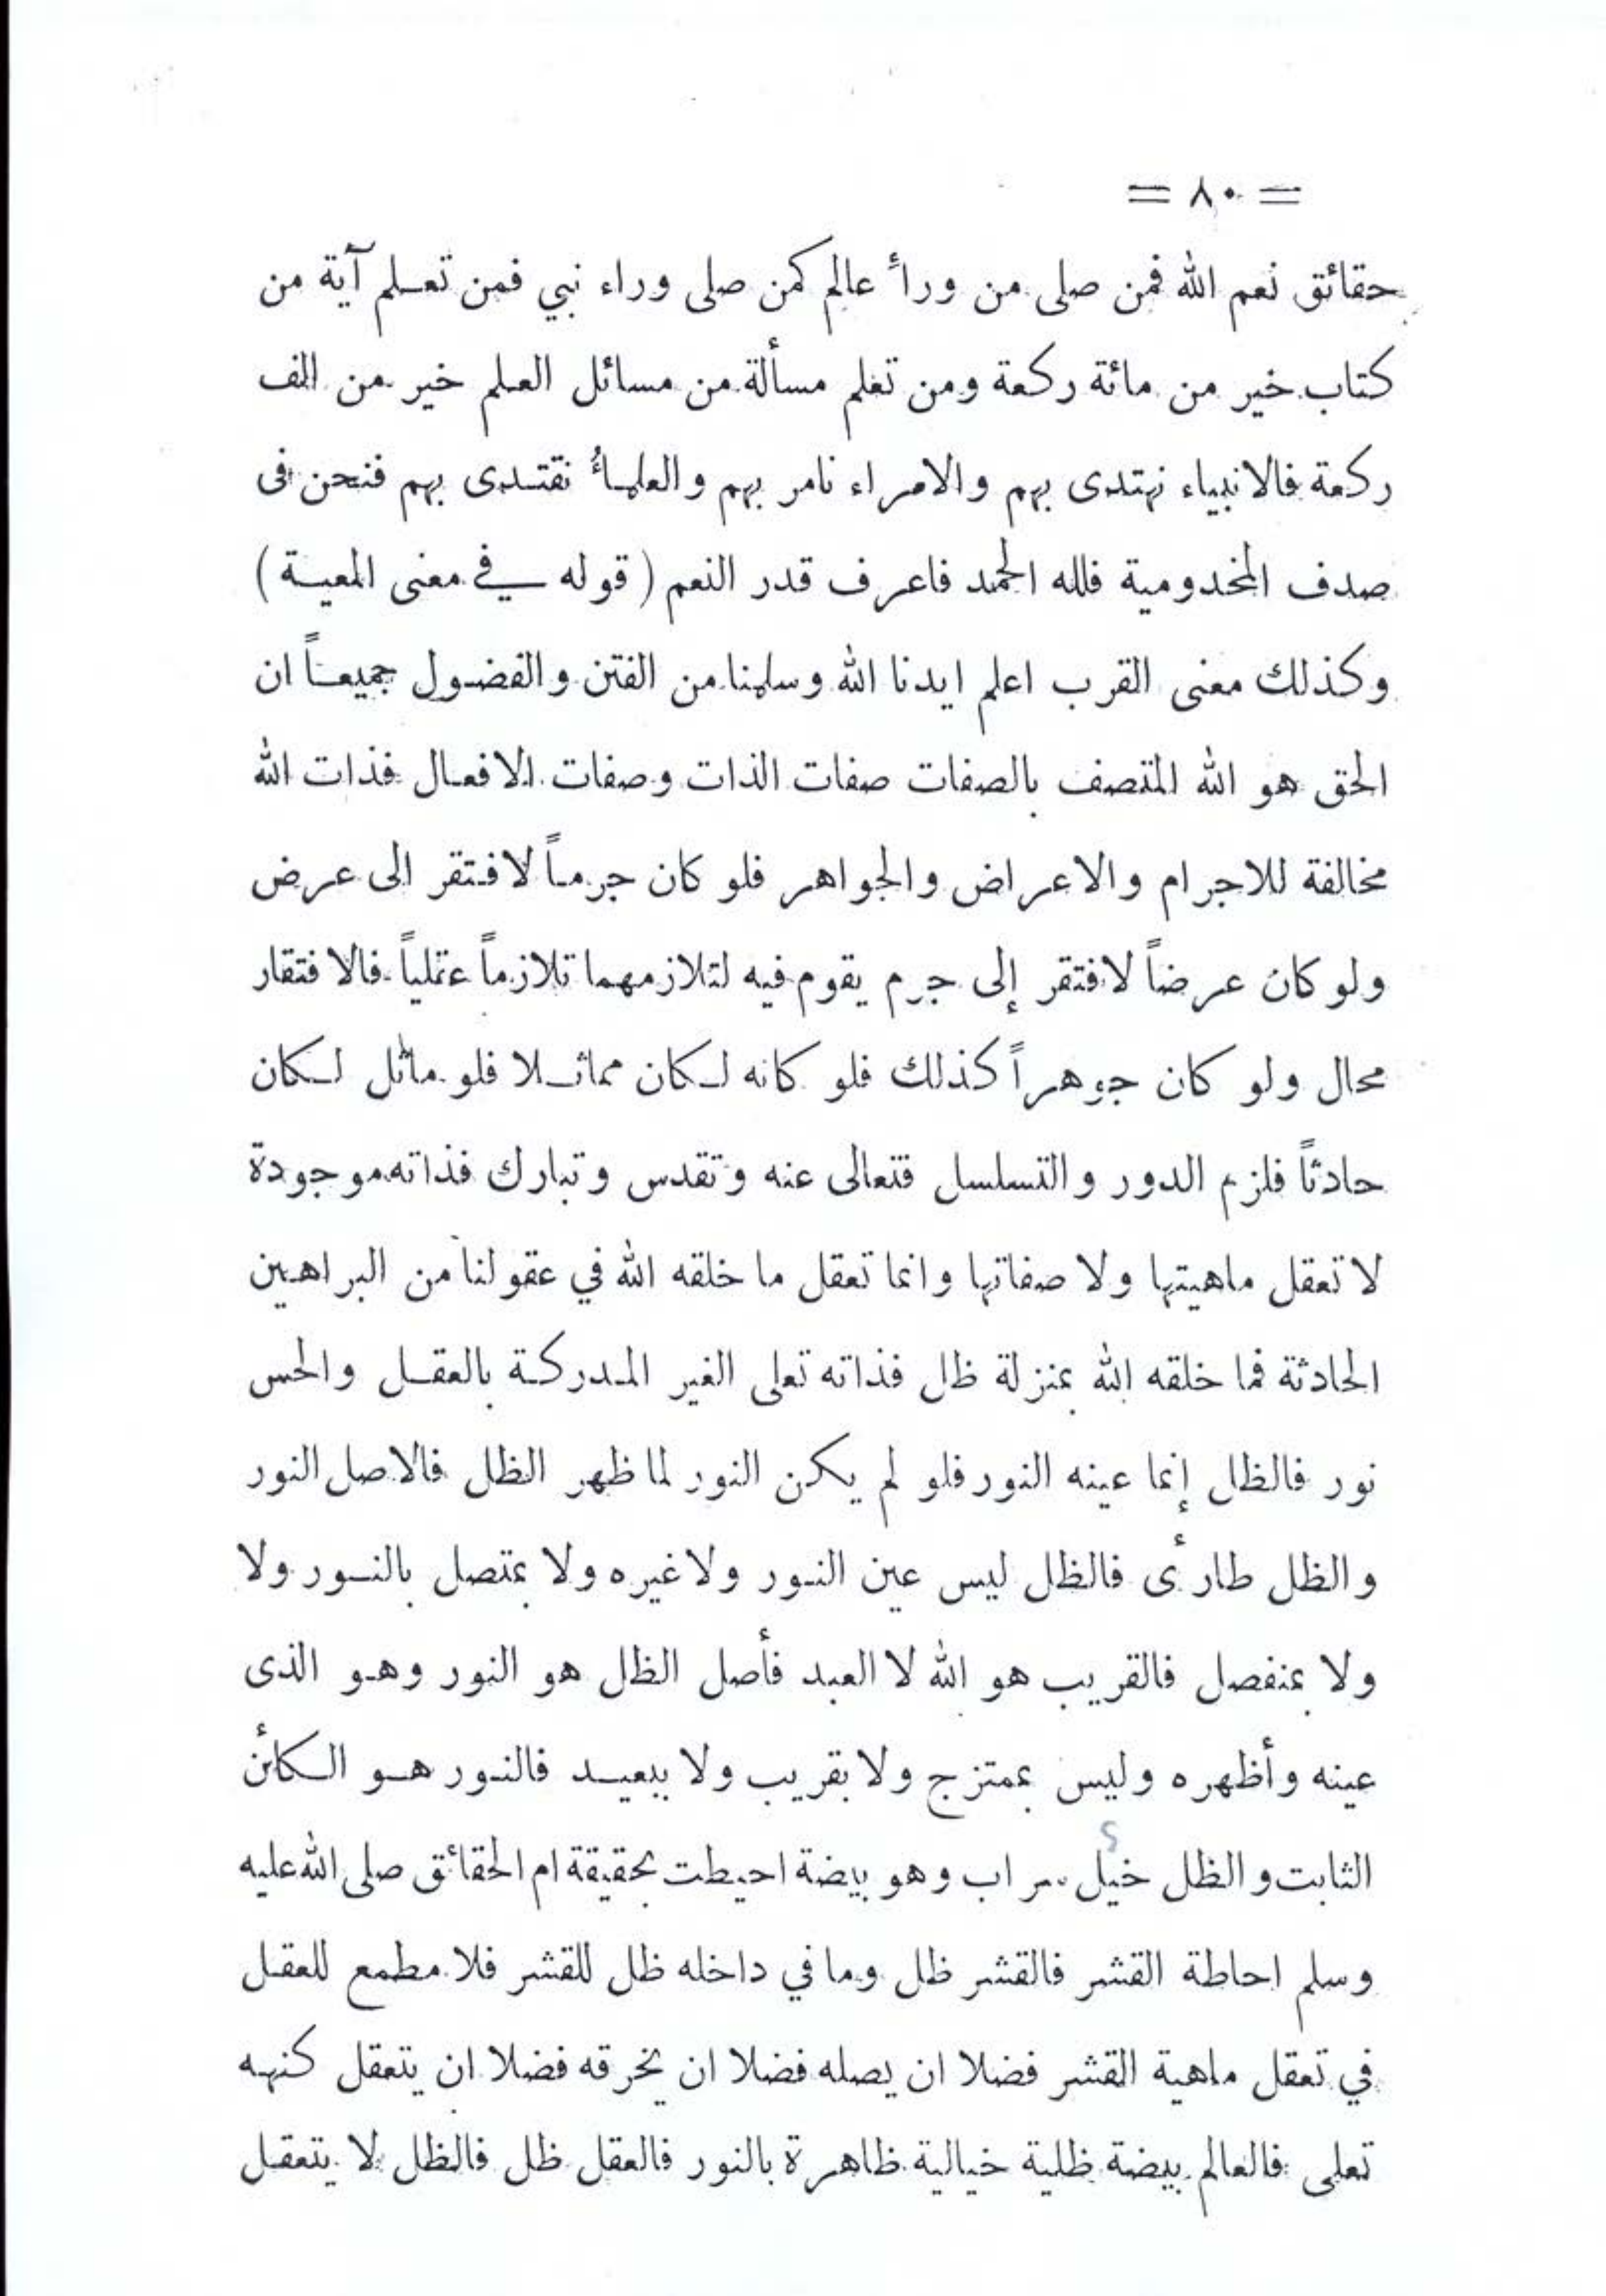 = ٨٠ =
حقائق نعم الله فمن صلى من ورأ عالم كمن صلى وراء نبي فمن تعلم آية من
كتاب خير من مائة ركعة ومن تعلم مسألة من مسائل العلم خير من الف
ركعة فالانبياء نهتدى بهم والامراء نامر بهم والعلمأ نقتدى بهم فنحن فى
صدف المخدومية فلله الحمد فاعرف قدر النعم ( قوله في معنى المعية )
وكذلك معنى القرب اعلم ايدنا الله وسلمنا من الفتن والفضول جميعاً ان
الحق هو الله المتصف بالصفات صفات الذات وصفات الافعال فذات الله
مخالفة للاجرام والاعراض والجواهر فلو كان جرماً لافتقر الى عرض
ولو كان عرضاً لافتقر إلى جرم يقوم فيه لتلازمهما تلازماً عقلياً فالافتقار
محال ولو كان جوهراً كذلك فلو كانه لكان مماثلا فلو ماثل لكان
حادثاً فلزم الدور والتسلسل فتعالى عنه وتقدس وتبارك فذاته موجودة
لا تعقل ماهيتها ولا صفاتها وانما تعقل ما خلقه الله في عقولنا من البراهين
الحادثة فما خلقه الله بمنزلة ظل فذاته تعلى الغير المدركة بالعقل والحس
نور فالظل إنما عينه النور فلو لم يكن النور لما ظهر الظل فالاصل النور
والظل طارئ فالظل ليس عين النور ولا غيره ولا بمتصل بالنور ولا
ولا بمنفصل فالقريب هو الله لا العبد فأصل الظل هو النور وهو الذى
عينه وأظهره وليس بممتزج ولا بقريب ولا ببعيد فالنور هو الكائن
الثابت والظل خيل سراب وهو بيضة احيطت بحقيقة ام الحقائق صلى الله عليه
وسلم احاطة القشر فالقشر ظل وما في داخله ظل للقشر فلا مطمع للعقل
في تعقل ماهية القشر فضلا ان يصله فضلا ان يخرقه فضلا ان يتعقل كنهه
تعلى فالعالم بيضة ظلية خيالية ظاهرة بالنور فالعقل ظل فالظل لا يتعقل